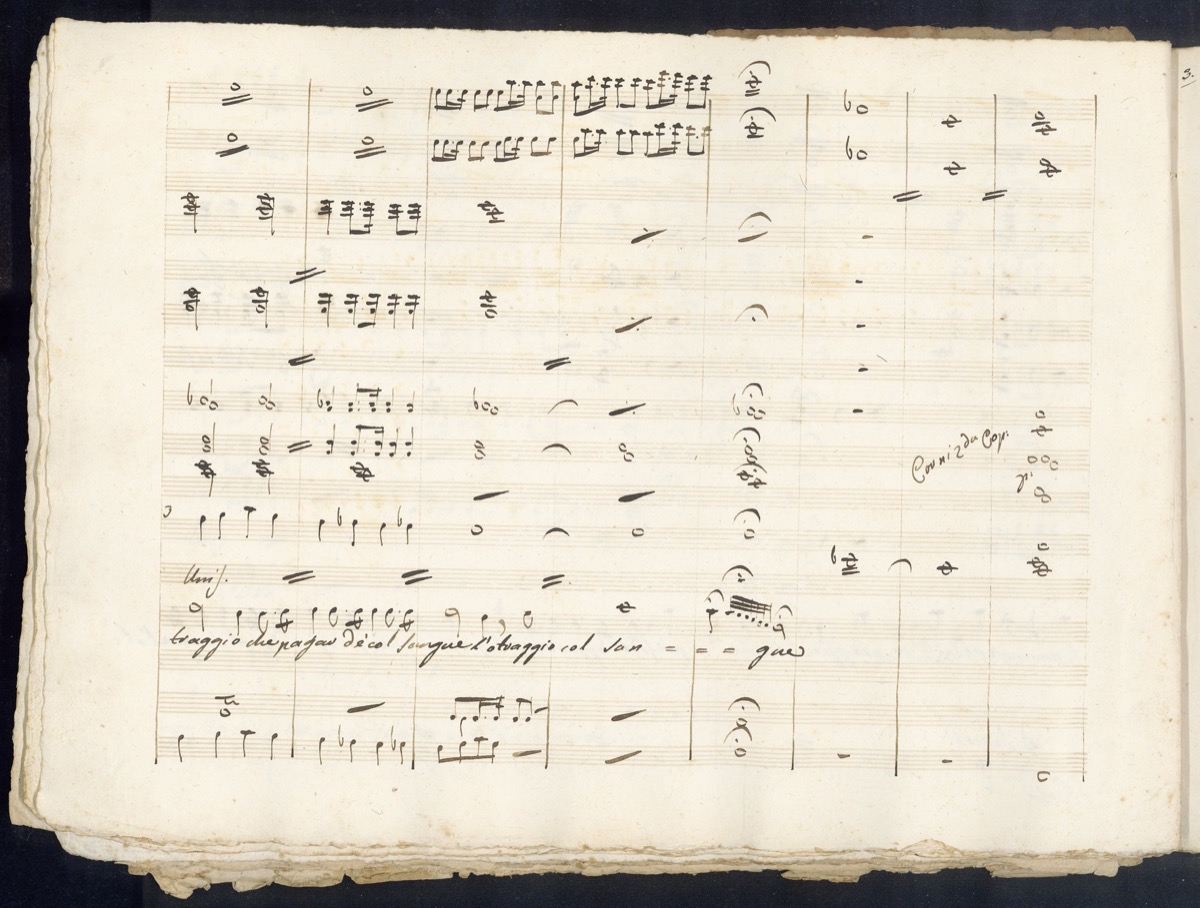 3.
Corni 2 da Cop.
Unis.
traggio che pagar dè col sangue l'otraggio col san = = = gue